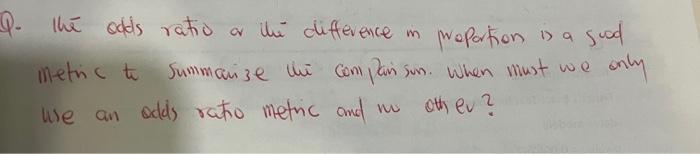 Q. The odds ratio or the difference in proportion is a good
metric to summarize the comparison. When must we only
use an odds ratio metric and no other?